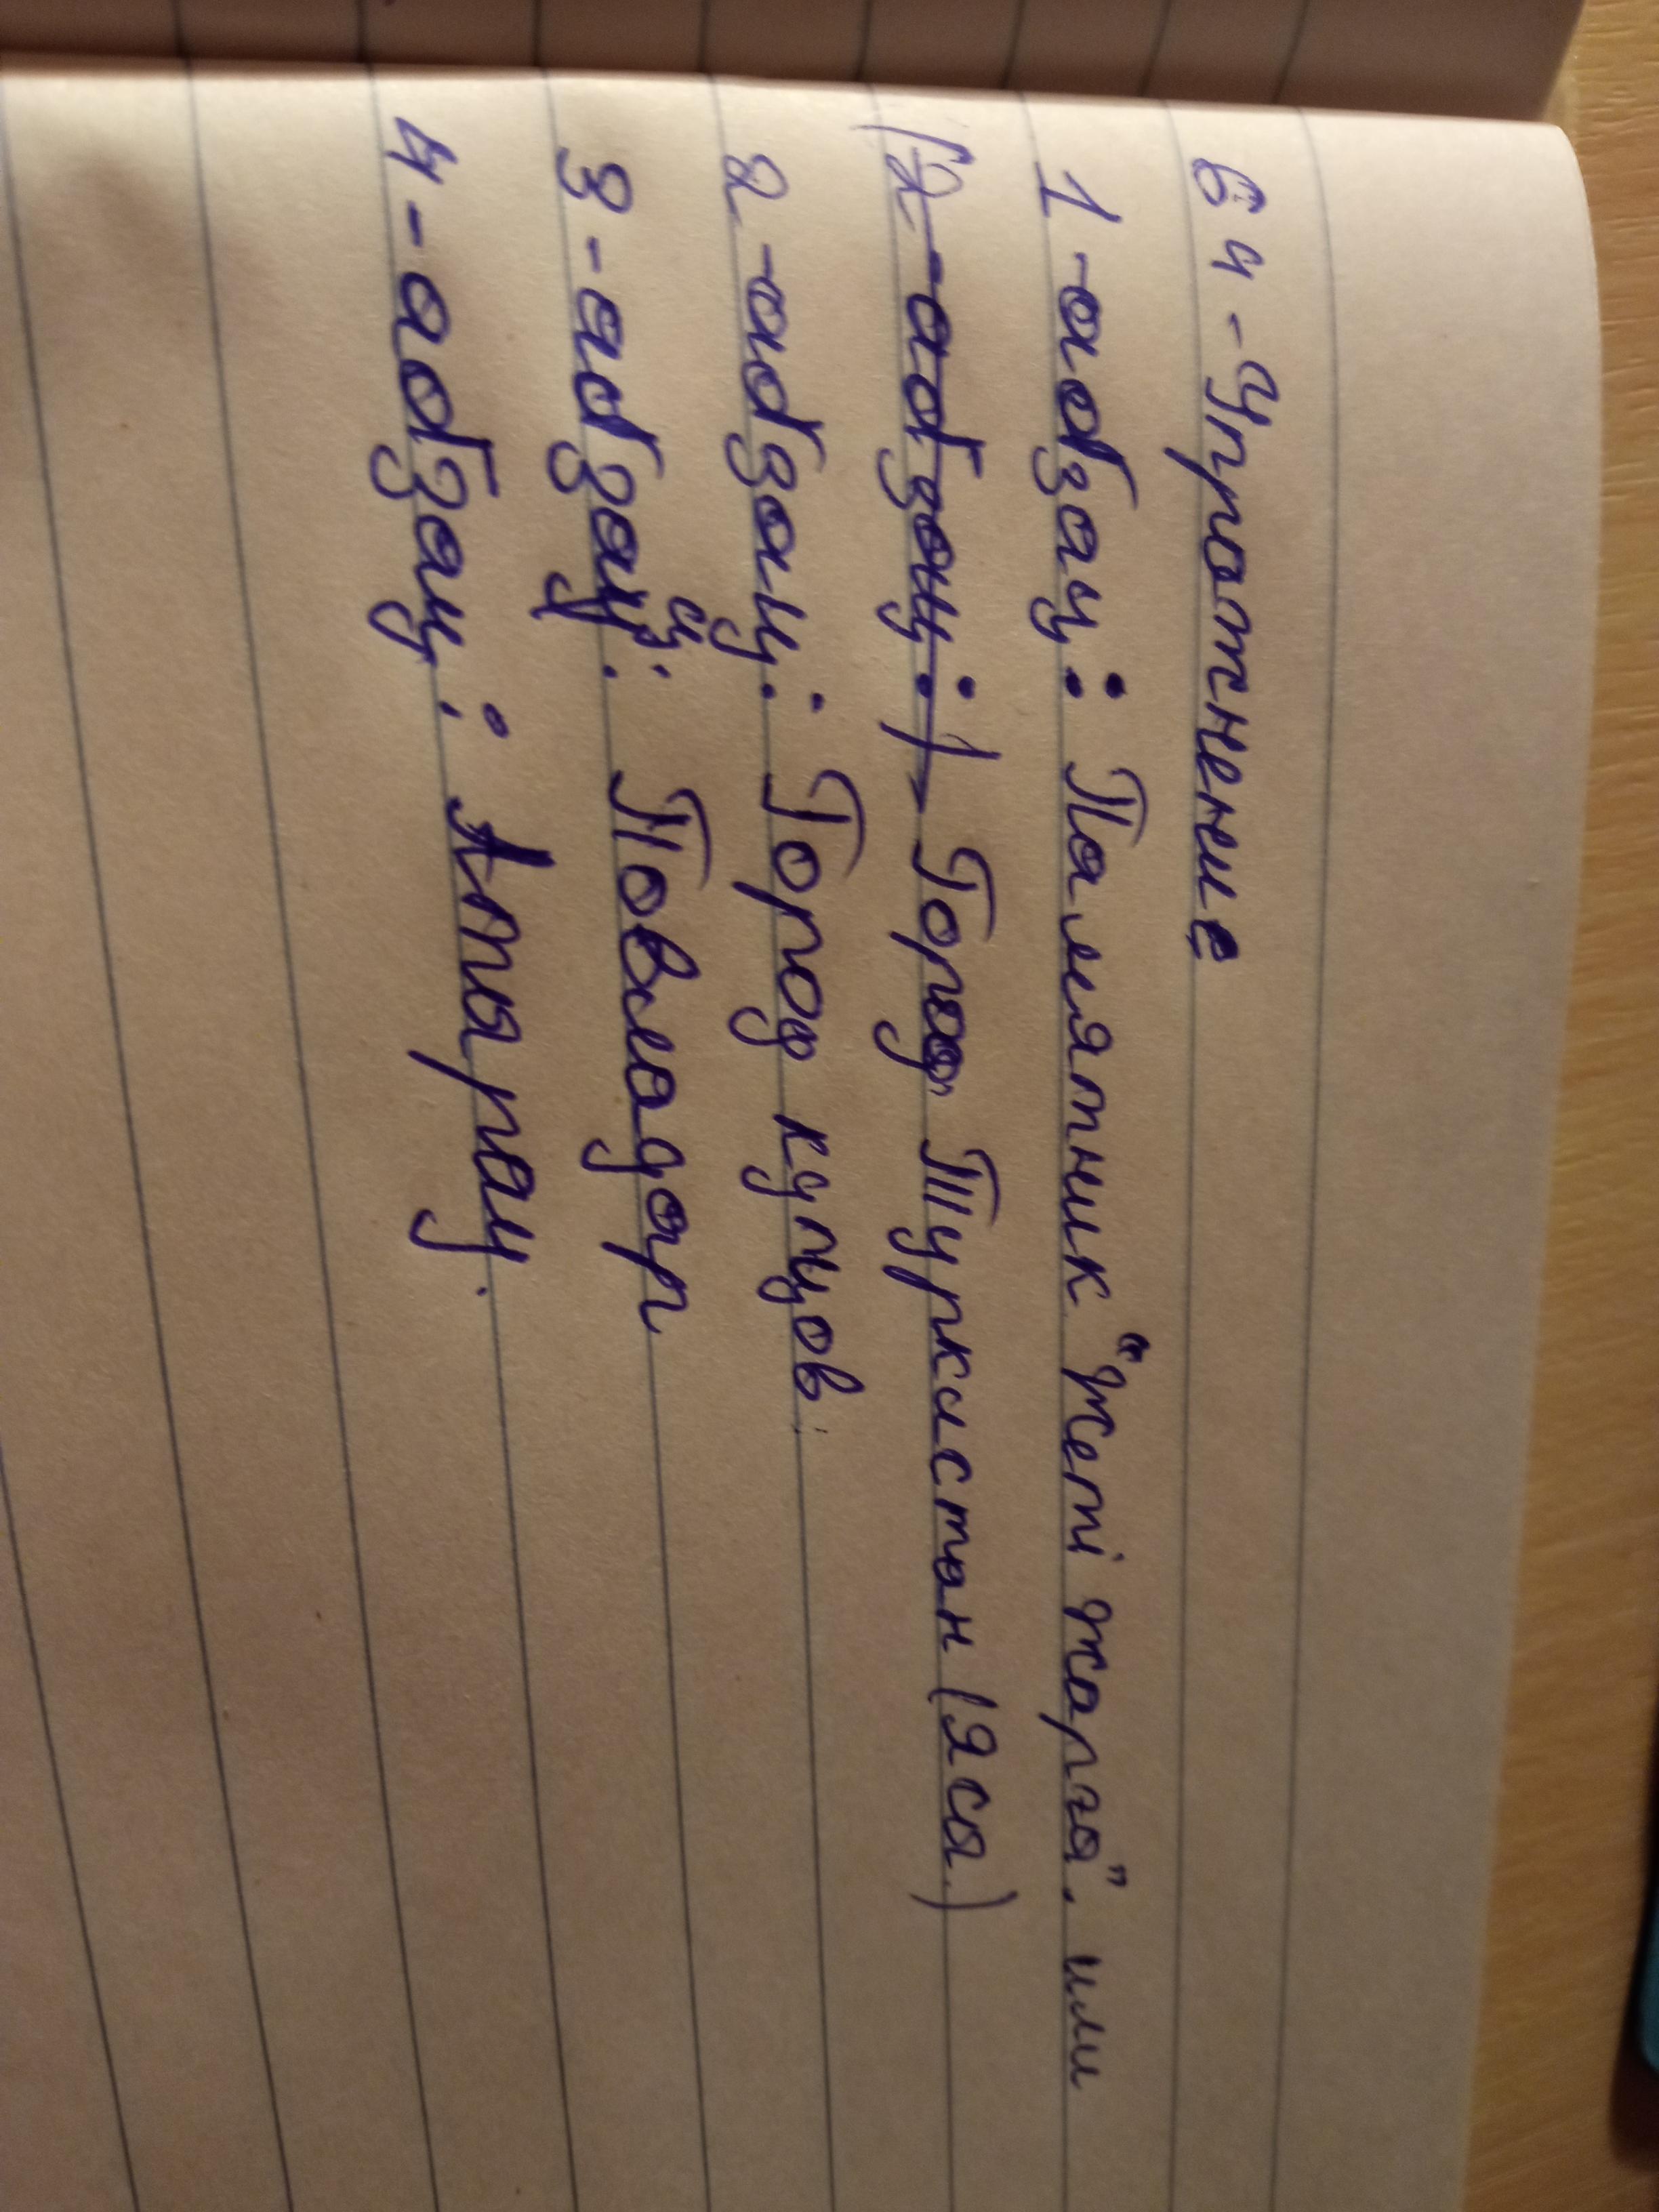 64 - Упротнение
1 - абзац: Памятник "Жеті жарғы". или
(2 - абзац:) Город Туркистан (Яса.)
2 - абзац: Город купцов.
3 - абзац: Повладар
4 - абзац: Атырау.